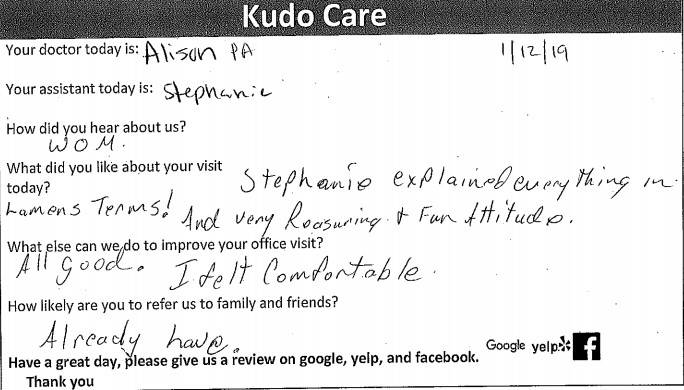 Kudo Care
Your doctor today is: Alison PA 1/12/19
Your assistant today is: Stephanie
How did you hear about us?
WOM.
What did you like about your visit
today? Stephanie explained everything in
Lamens Terms! And very Reasuring & Fun Attitude.
What else can we do to improve your office visit?
All good. I felt Comfortable.
How likely are you to refer us to family and friends?
Already have.
Google yelp f
Have a great day, please give us a review on google, yelp, and facebook.
Thank you